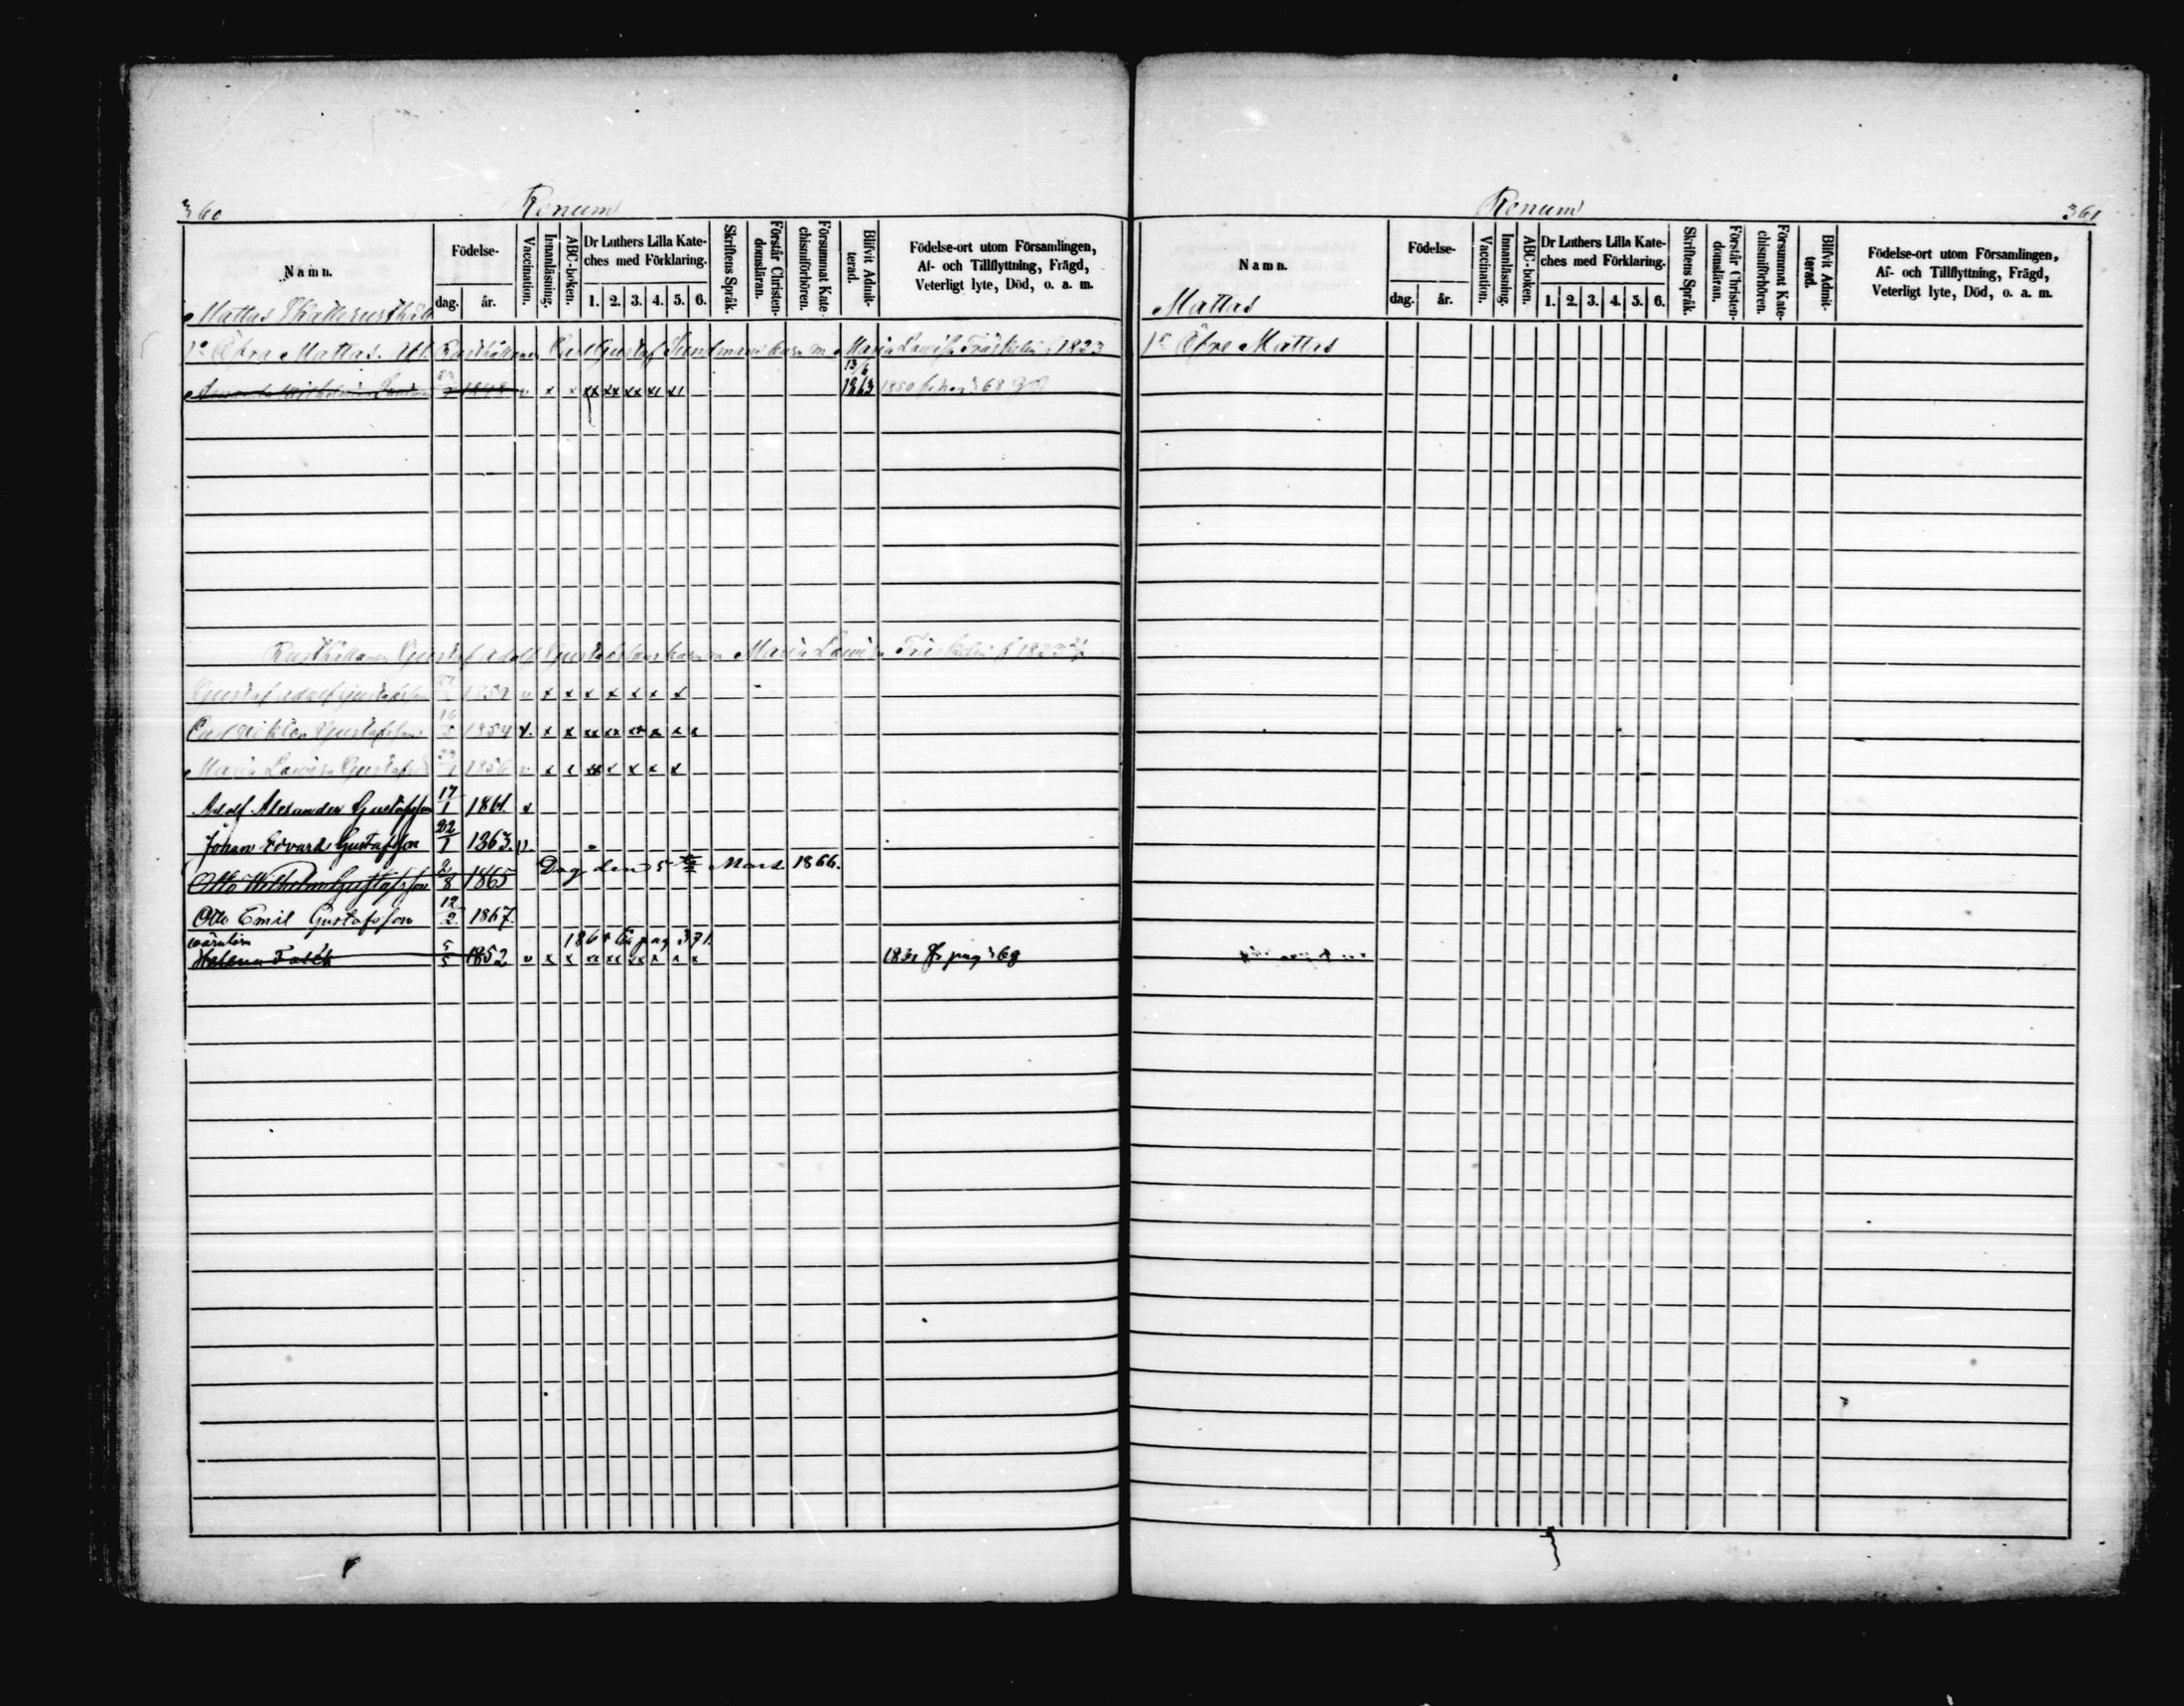 360
Konum
Namn.
Födelse-
dag.
år.
Vaccination.
Innanläsning.
ABC-boken.
Dr Luthers Lilla Kate-
ches med Förklaring.
1. 2. 3. 4. 5. 6.
Skriftens Språk.
Förstår Christen-
domsläran.
Försummat Kate-
chismiförhören.
Blifvit Admit-
terad.
Födelse-ort utom Församlingen,
Af- och Tillflyttning, Frägd,
Veterligt lyte, Död, o. a. m.
Mattas
1o Öfra Mattas. Rusthållaren Carl Gustaf barn m. Maria Lovisa 1823
13/6
x x xx xx xx x1 x1 1863 1850 68
Rusthållaren Gustaf Adolf barn m Maria Lovisa f 1823
Gustaf Adolf Gustafsson v x x x x x x x
Carl Victor Gustafsson 16 1854 v. x x xx xx xx x x x
Maria Lovisa 23 1856 v x x xx x x x x
Adolf Alexander Gustafsson 17/1 1861. v
Johan Edvard Gustafsson 22/1 1863. v.
Otto Wilhelm Gustafsson 2/8 1865 Dog den 5 te Mars 1866.
Otto Emil Gustafsson 12/2. 1867.
wärnlösa 186 pag 371.
Helena 5/5 1852 v x x xx xx xx x x x pag 68
Konum
361
Namn.
Födelse-
dag.
år.
Vaccination.
Innanläsning.
ABC-boken.
Dr Luthers Lilla Kate-
ches med Förklaring.
1. 2. 3. 4. 5. 6.
Skriftens Språk.
Förstår Christen-
domsläran.
Försummat Kate-
chismiförhören.
Blifvit Admit-
terad.
Födelse-ort utom Församlingen,
Af- och Tillflyttning, Frägd,
Veterligt lyte, Död, o. a. m.
Mattas
1o Öfre Mattas